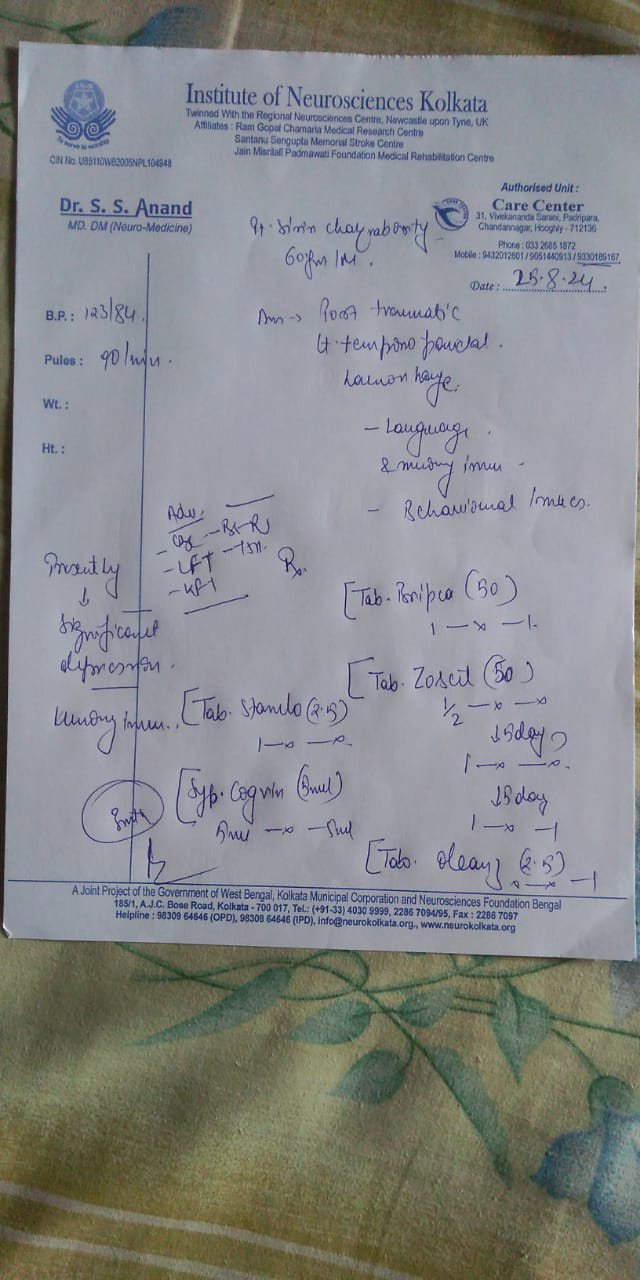 Institute of Neurosciences Kolkata
Twinned With the Regional Neurosciences Centre, Newcastle upon Tyne, UK
Affiliates : Ram Gopal Chamaria Medical Research Centre
Santanu Sengupta Memorial Stroke Centre
Jain Misrilall Padmawati Foundation Medical Rehabilitation Centre
CIN No. U85110WB2005NPL104948
Dr. S. S. Anand
MD. DM (Neuro-Medicine)
Authorised Unit :
Care Center
31, Vivekananda Sarani, Padripara,
Chandannagar, Hooghly - 712136
Phone : 033 2685 1872
Mobile : 9432012601 / 9051440913 / 9330189167
Date : 25.8.24
60 /M.
B.P. : 123/84.
Pules : 90/min.
Wt. :
Ht. :
Post traumatic
Lt. temporo
- Language
&
- Behavioural
Adv.
- LFT
Rx.
Presently
↓
Significant
depression.
[Tab. (50)
1 — x — 1.
[Tab. (50)
1/2 — x — x
↓ 5 day
1 — x — x.
↓ 5 day
1 — x — 1
[Tab. (2.5)
1 — x — x.
[Syp. Cognin (5ml)
5ml — x — 5ml
[Tab. Oleanz (2.5)
x — x — 1
A Joint Project of the Government of West Bengal, Kolkata Municipal Corporation and Neurosciences Foundation Bengal
185/1, A.J.C. Bose Road, Kolkata - 700 017, Tel.: (+91-33) 4030 9999, 2286 7094/95, Fax : 2286 7097
Helpline : 98309 64646 (OPD), 98308 64646 (IPD), info@neurokolkata.org., www.neurokolkata.org